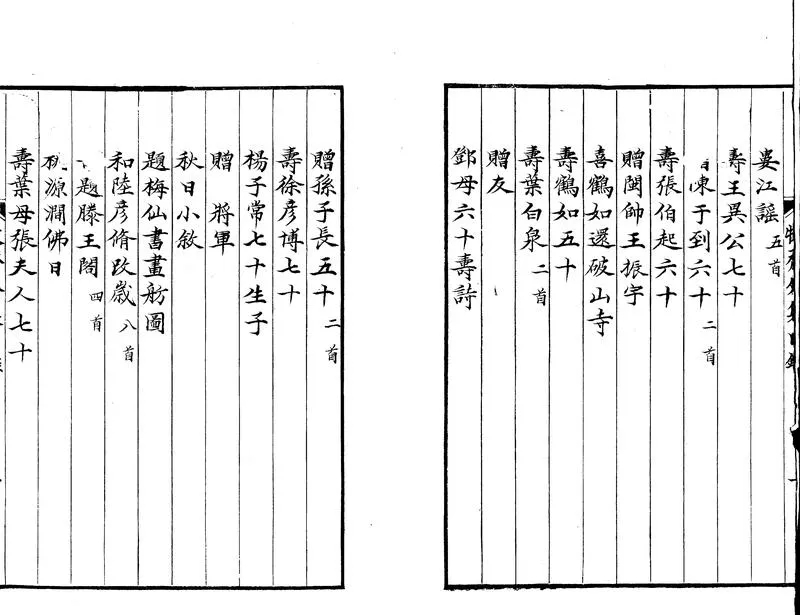 婁江謠 五首
壽王異公七十
陳于到六十 二首
壽張伯起六十
贈閩帥王振宇
喜鶴如還破山寺
壽鶴如五十
壽葉白泉 二首
贈友
鄧母六十壽詩
贈孫子長五十 二首
壽徐彥博七十
楊子常七十生子
贈 將軍
秋日小敘
題梅仙書畫舫圖
和陸彥脩改歲 八首
題滕王閣 四首
源澗佛日
壽葉母張夫人七十